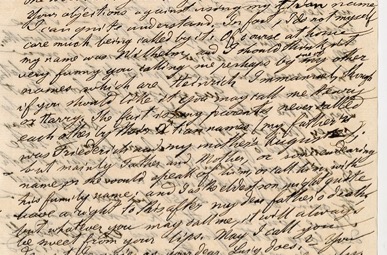 Your objections against using my [...] name
I can quite understand. In fact, I do not myself
care much being called by it. Of course at home
my name was Wilhelm, and I should think it
very funny you taking me perhaps by my other
names which are Heinrich Immanuel, though
if you should like it you may call me Henry
or Harry. The fact is my parents never called
each other by their Xtian names (my father's
was Friedrich and my mother's Auguste);
but mainly Father and Mother, or
name in the would speak of him or talk to him with
his family name; and I as the eldest son might quite
have a right to this after my dear father's death
but whatever you may call me it will always
be sweet from your lips. May I call you
as your dear Lucy does?